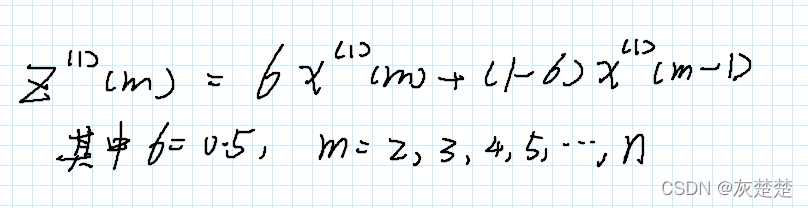 z⁽¹⁾(m) = 6 x⁽¹⁾(m) + (1-6) x⁽¹⁾(m-1)
其中 6 = 0.5, m = 2, 3, 4, 5, ..., n
CSDN @灰楚楚